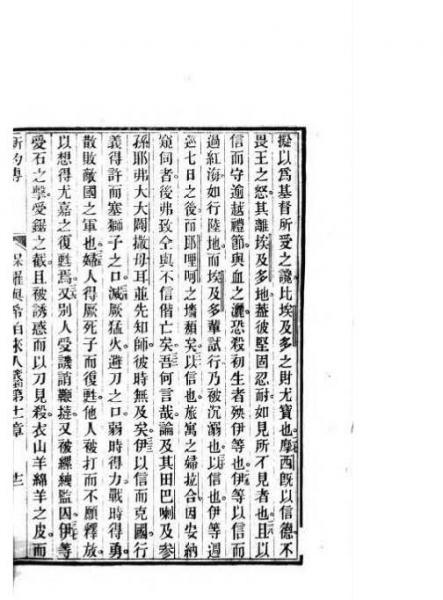 擬以為基督所受之謗比埃及多之財尤寶也摩西既以信德不
畏王之怒其離埃及多地蓋彼堅固忍耐如見所不見者也且以
信而守逾越禮節與血之灑恐殺初生者殃伊等也伊等以信而
過紅海如行陸地而埃及多輩試行乃被沉溺也以信也伊等週
巡七日之後而耶哩呵之墻頽矣以信也旅寓之婦拉合因安納
窺伺者後弗致全與不信偕亡矣吾何言哉論及其田巴喇及參
孫耶弗大大闥撒母耳並先知師彼時無及矣伊以信而克國行
義得許而塞獅子之口滅厥猛火避刀之口弱時得力戰時得勇
散敗敵國之軍也婦人得厥死子而復甦他人被打而不願釋放
以想得尤嘉之復甦焉又別人受譏誚鞭撻又被縲絏監囚伊等
受石之擊受鋸之截且被誘惑而以刀見殺衣山羊綿羊之皮而
保羅與希伯來人書第十一章